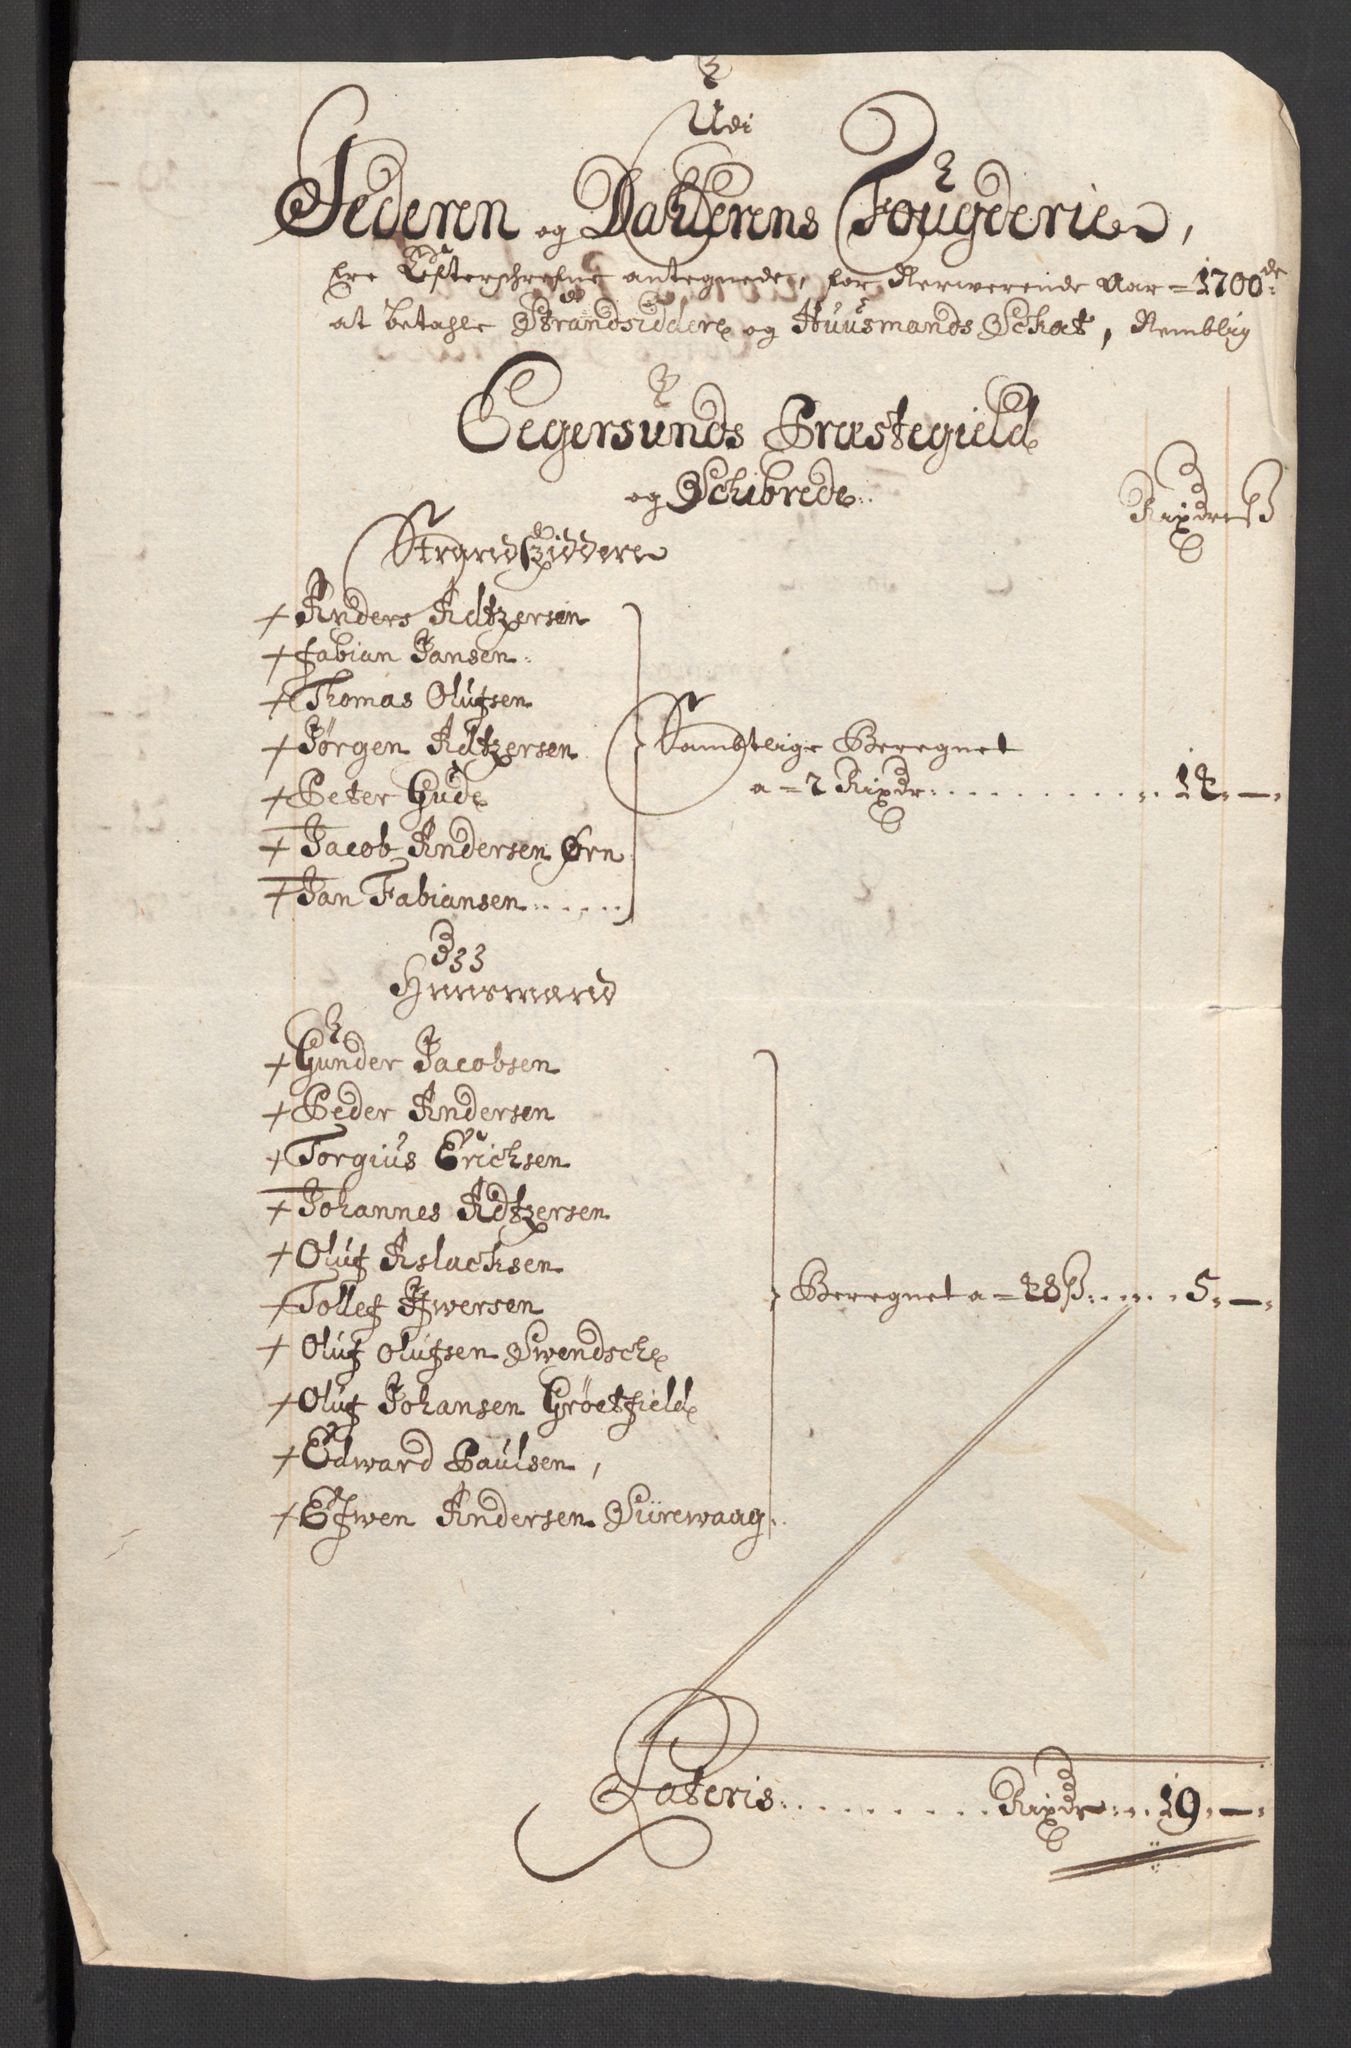 Udi
Jederen og Dahlerens Fougderie,
ere Effterschrefne antegnede, for Nerwerende Aar = 1700de
at betahle Strandsiddere og Huusmands Schat, Nemblig
Eegersunds Præstegield
og Schibrede.
Rixdr ß
Strandsziddere
+ Anders Adtzersen
+ Fabian Jansen.
+ Thomas Olufsen
+ Jørgen Adtzersen
+ Peter Gude
+ Jacob Andersen Ørn
+ Jan Fabiansen
Sambtlige Beregnet
a = 2 Rixdr 14 —
Huusmænd
+ Gunder Jacobsen
+ Peder Andersen
+ Torgius Erichsen
+ Johannes Adtzersen
+ Oluf Aslachsen
+ Tollef Iwersen
+ Oluf Olufsen Swendsche
+ Oluf Johansen Grøetfield
+ Edward Paulsen,
+ Efwen Andersen Siirewaag
Beregnet a = 48 ß 5 —
Lateris Rixdr 19 —